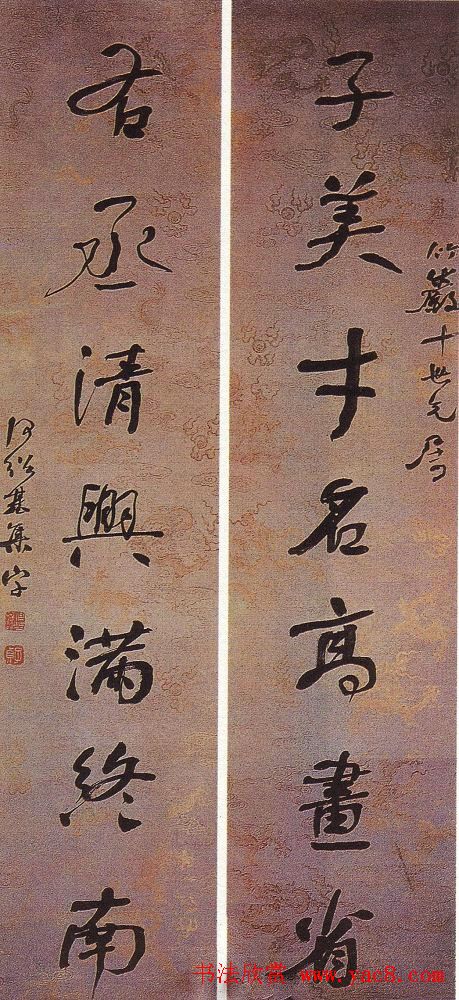 竹巖十世兄屬
子美才名高畫省
右丞清興滿終南
何紹基集字
书法欣赏 www.yac8.com